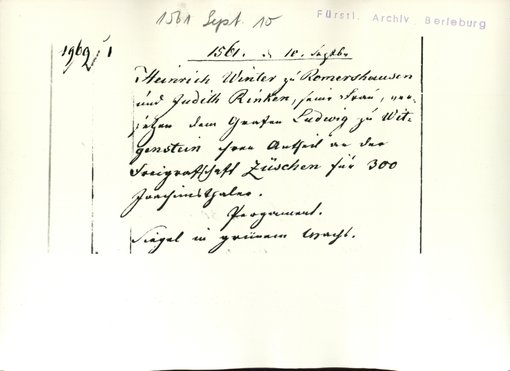 1561 Sept. 10
Fürstl. Archiv Berleburg
1961
1561. d 10. Septbr
Heinrich Winter zu Romershausen
und Judith Rinken, seine Frau, ver-
setzen dem Grafen Ludwig zu Wit-
genstein ihren Antheil an der
Freigrafschaft Züschen für 300
Joachimsthaler.
Pergament.
Siegel in grünem Wachs.